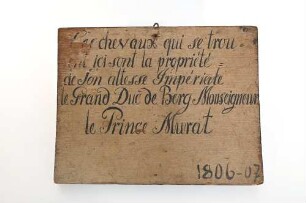 Les chevaux qui se trou
ent ici sont la propriété
de Son altesse Impériale
le Grand Duc de Berg Monseigneur
le Prince Murat
1806-07